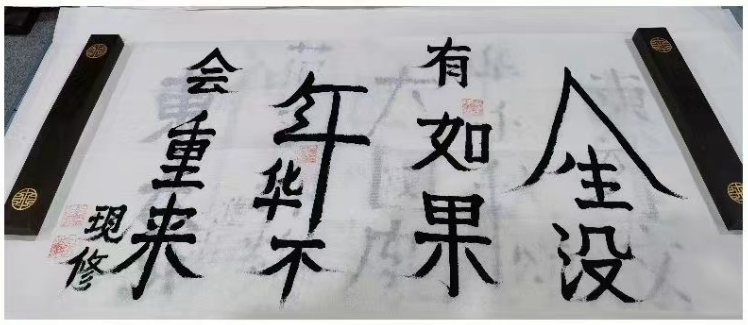 人生没
有如果
年华不
会重来
現修